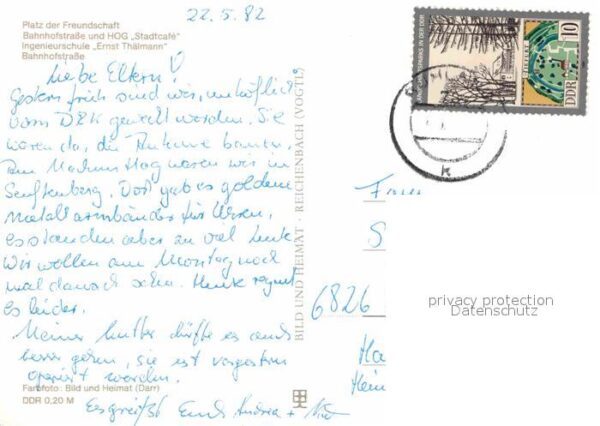 22.5.82
Platz der Freundschaft
Bahnhofstraße und HOG „Stadtcafé"
Ingenieurschule „Ernst Thälmann"
Bahnhofstraße
Liebe Eltern!
Gestern früh sind wir unhöflich
vom DRK geweckt worden. Sie
waren da, die Antenne bauen.
Am Nachmittag waren wir in
Senftenberg. Dort gab es goldene
Metallarmbänder für Uhren,
es standen aber zu viel Leute
Wir wollen am Montag noch
mal danach sehn. Heute regnet
es leider.
Meiner Mutter dürfte es auch
besser gehen, sie ist vorgestern
operiert worden.
Es grüßt Euch Andrea +
Farbfoto: Bild und Heimat (Darr)
DDR 0,20 M
BILD UND HEIMAT REICHENBACH (VOGTL)
IN DER DDR
DDR
10
k
S
6826
privacy protection
Datenschutz